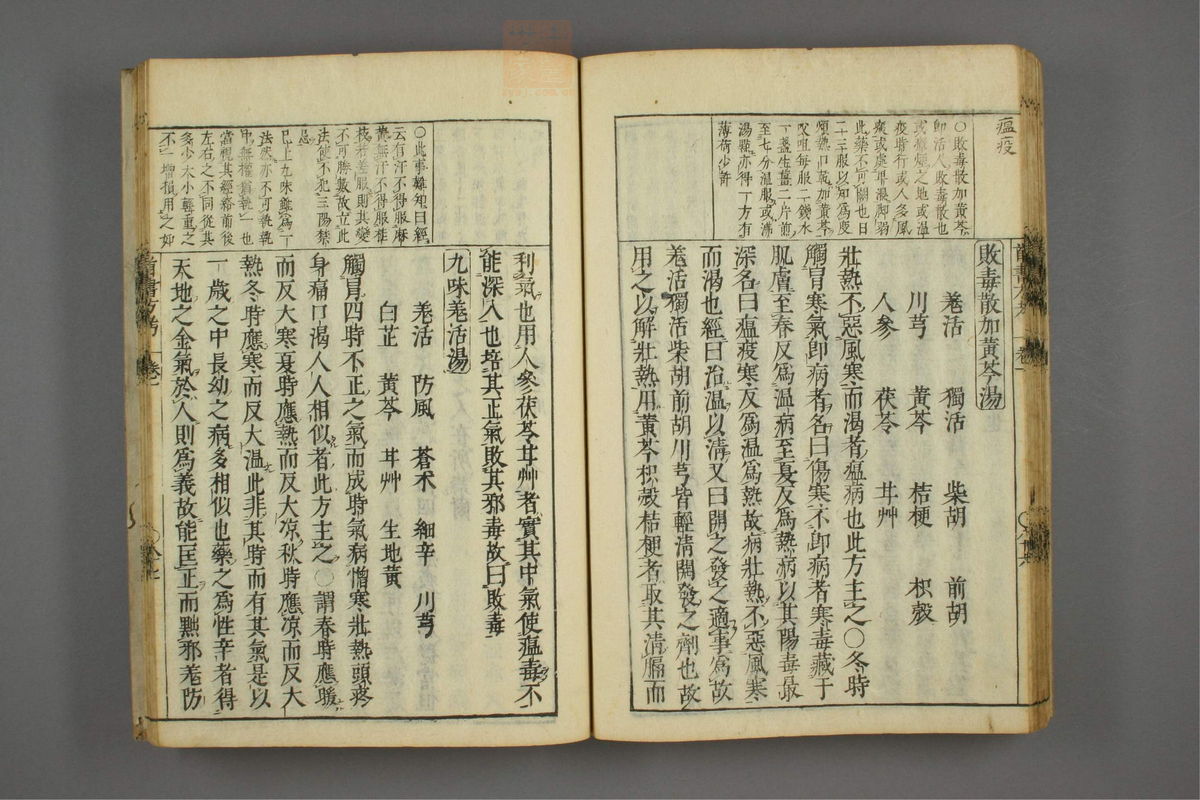 瘟疫
○敗毒散加黃芩
即活人敗毒散也
或瘴烟之地或溫
疫時行或人多風
痰或處卑濕脚弱
此藥不可闕也日
二十三服以知爲度
煩熱口乾加黃芩
㕮咀每服二錢水
一盞生薑二片煎
至七分溫服或沸
湯點亦得一方有
薄荷少許
敗毒散加黃芩湯
羗活 獨活 柴胡 前胡
川芎 黃芩 桔梗 枳殼
人參 茯苓 甘艸
壯熱不惡風寒而渴者瘟病也此方主之○冬時
觸冒寒氣即病者名曰傷寒不即病者寒毒藏于
肌膚至春反爲溫病至夏反爲熱病以其陽毒最
深名曰瘟疫寒反爲溫爲熱故病壯熱不惡風寒
而渴也經曰治溫以淸又曰開之發之適事爲故
羗活獨活柴胡前胡川芎皆輕淸開發之劑也故
用之以解壯熱用黃芩枳殼桔梗者取其淸膈而
○此事難知曰經
云有汗不得服麻
黃無汗不得服桂
枝若差服則其變
不可勝數故立此
法使不犯三陽禁
忌
已上九味雖爲一
法然亦不可執執
中無權猶執一也
當視其經絡前後
左右之不同從其
多少大小輕重之
不一增損用之如
利氣也用人參茯苓甘艸者實其中氣使瘟毒不
能深入也培其正氣敗其邪毒故曰敗毒
九味羗活湯
羗活 防風 蒼朮 細辛 川芎
白芷 黃芩 甘艸 生地黃
觸冒四時不正之氣而成時氣病憎寒壯熱頭疼
身痛口渴人人相似者此方主之○謂春時應暖
而反大寒夏時應熱而反大凉秋時應凉而反大
熱冬時應寒而反大溫此非其時而有其氣是以
一歲之中長幼之病多相似也藥之爲性辛者得
天地之金氣於人則爲義故能匡正而黜邪羗防